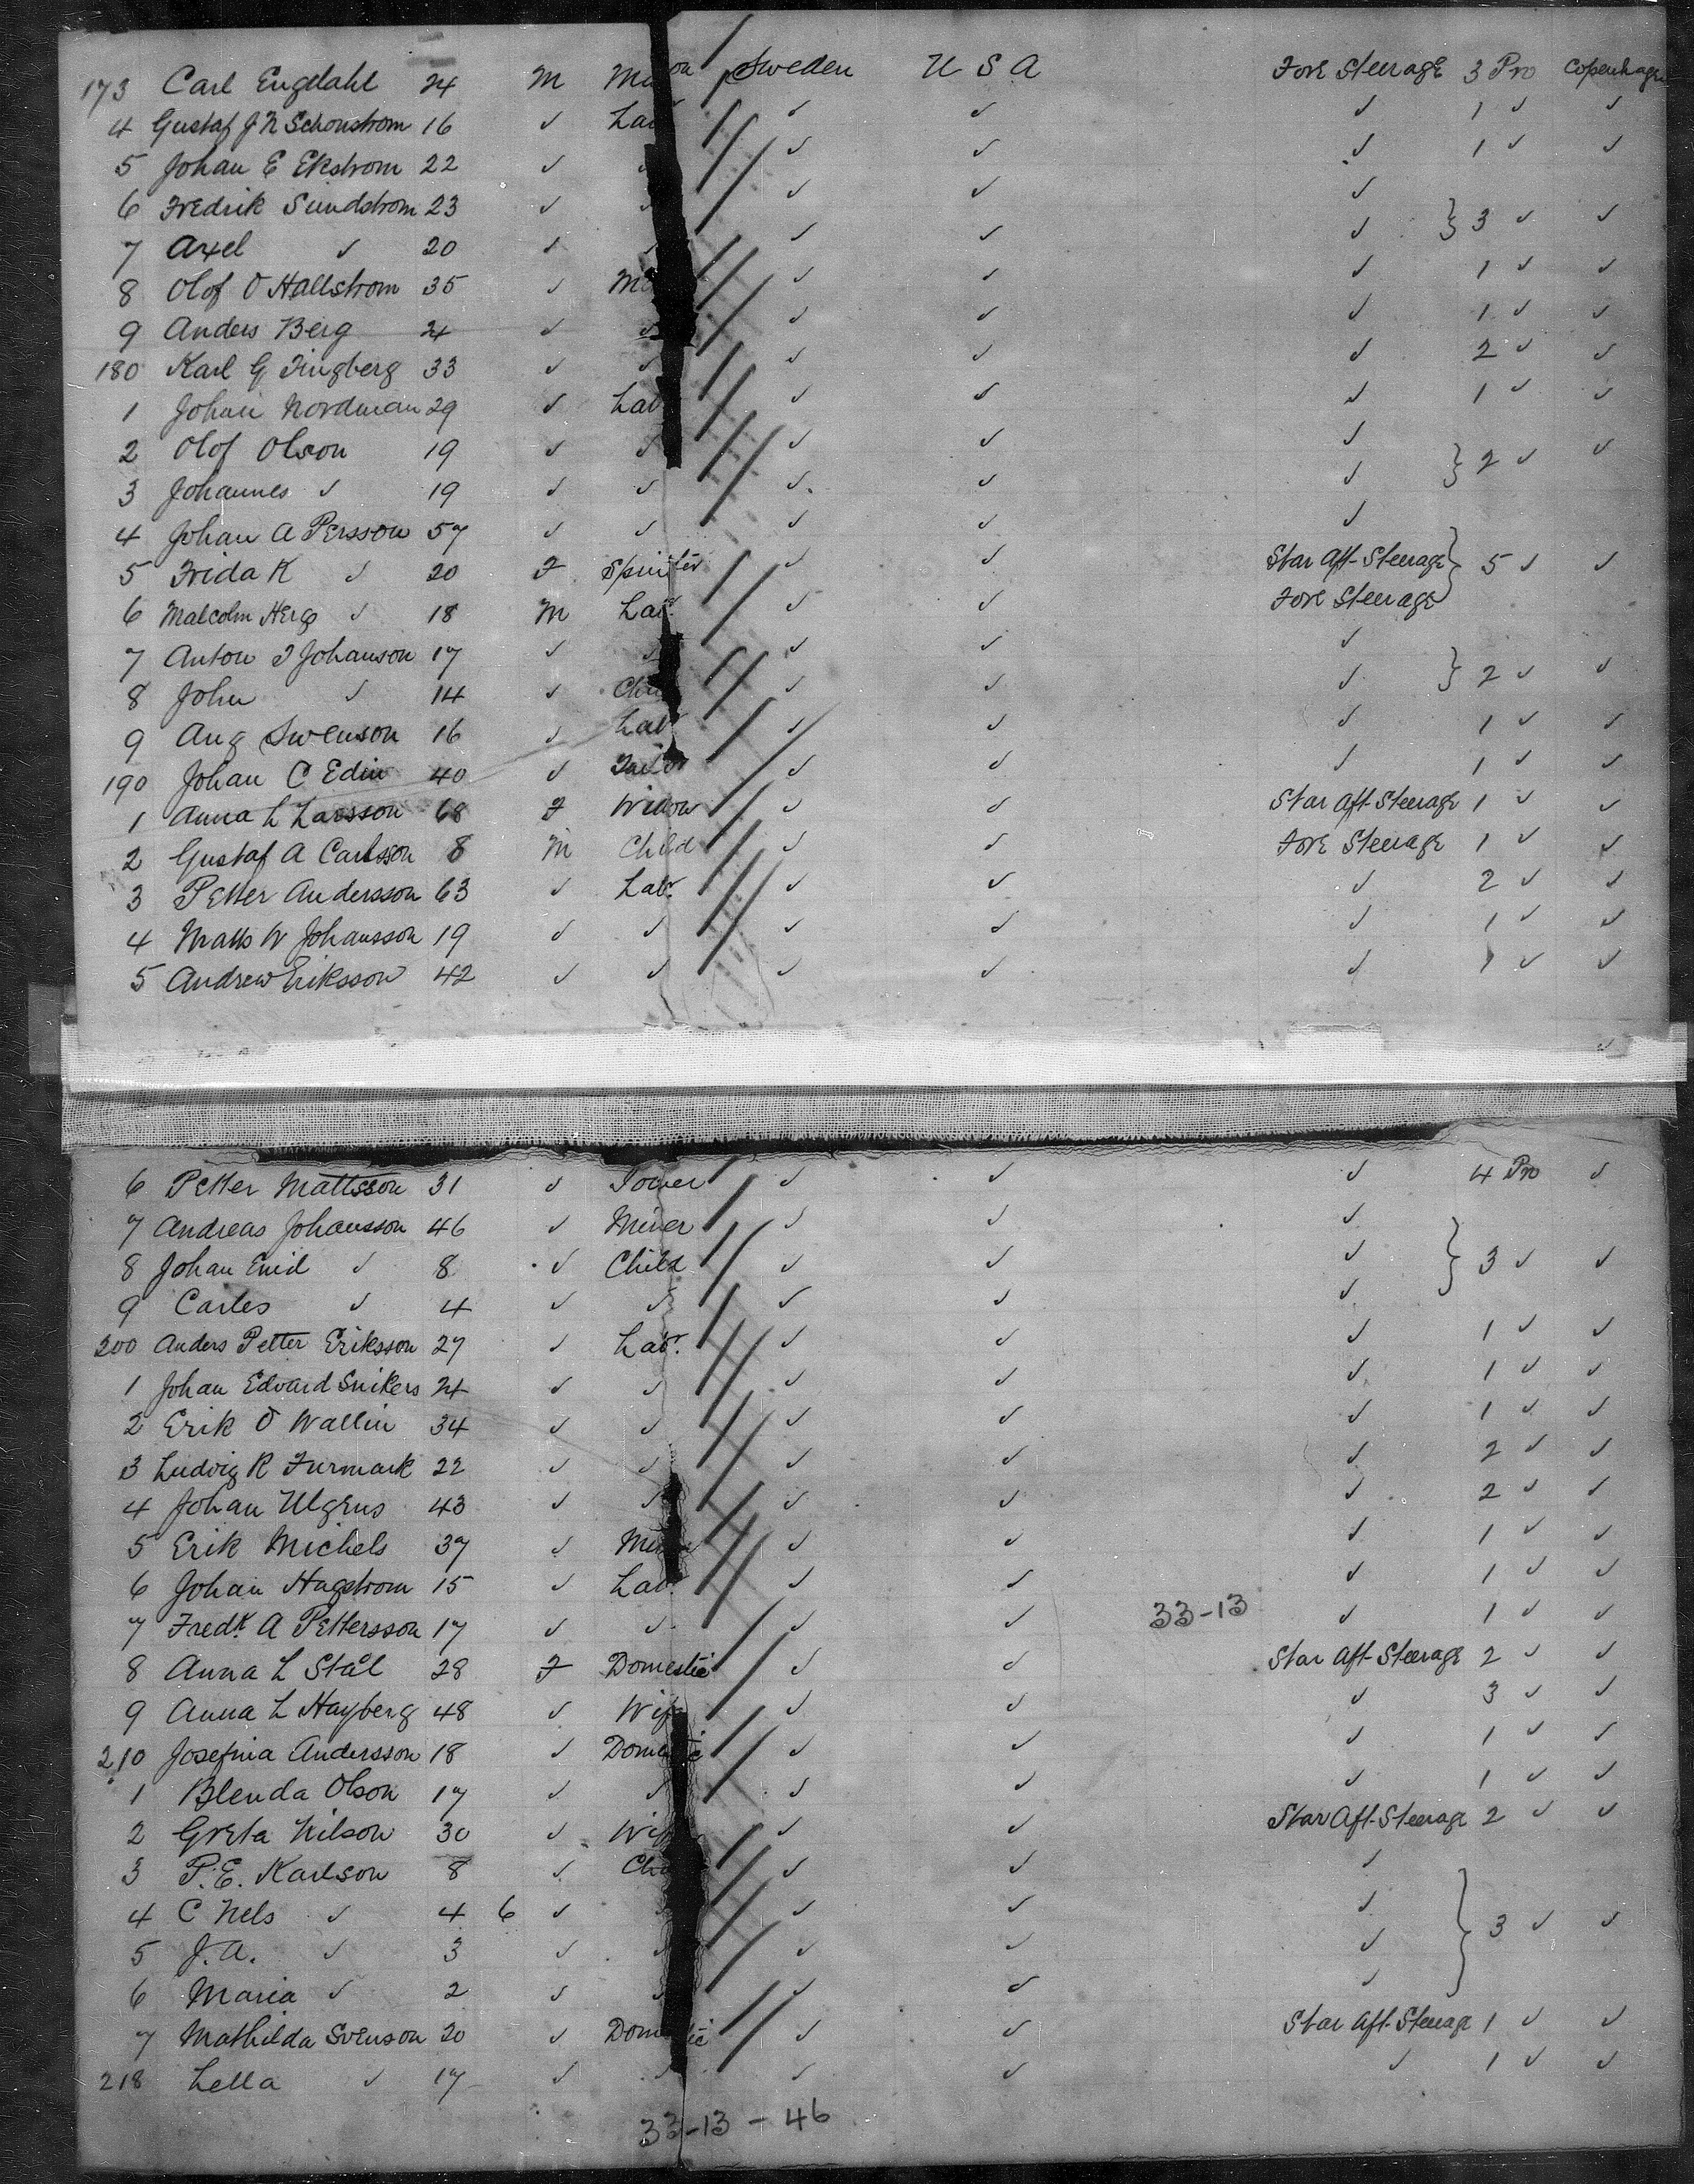 173 Carl Engdahl 24 M on Sweden U S A Fore Steerage 3 Pro Copenhagen
4 Gustaf J N Schonstrom 16 ✓ Lab ✓ ✓ ✓ 1 ✓ ✓
5 Johan E Ekstrom 22 ✓ ✓ ✓ ✓ ✓ 1 ✓ ✓
6 Fredrik Sundstrom 23 ✓ ✓ ✓ ✓ ✓
7 Axel ✓ 20 ✓ ✓ ✓ ✓ ✓ } 3 ✓ ✓
8 Olof O Hallstrom 35 ✓ ✓ ✓ ✓ 1 ✓ ✓
9 Anders Berg 24 ✓ ✓ ✓ ✓ ✓ 1 ✓ ✓
180 Karl G Tingberg 33 ✓ ✓ ✓ ✓ ✓ 2 ✓ ✓
1 Johan Nordman 29 ✓ Lab ✓ ✓ ✓ 1 ✓ ✓
2 Olof Olson 19 ✓ ✓ ✓ ✓ ✓
3 Johannes ✓ 19 ✓ ✓ ✓ ✓ ✓ } 2 ✓ ✓
4 Johan A Persson 57 ✓ ✓ ✓ ✓ ✓
5 Frida K ✓ 20 F Spinster ✓ ✓ Star Aft-Steerage } 5 ✓ ✓
6 Malcolm Herg ✓ 18 M Lab. ✓ ✓ Fore Steerage
7 Anton J Johanson 17 ✓ ✓ ✓ ✓ ✓
8 John ✓ 14 ✓ Child ✓ ✓ ✓ } 2 ✓ ✓
9 Aug Swenson 16 ✓ Labr ✓ ✓ ✓ 1 ✓ ✓
190 Johan C Edin 40 ✓ Tailor ✓ ✓ ✓ 1 ✓ ✓
1 Anna L Larsson 68 F Widow ✓ ✓ Star Aft-Steerage 1 ✓ ✓
2 Gustaf A Carlsson 8 M Child ✓ ✓ Fore Steerage 1 ✓ ✓
3 Petter Andersson 63 ✓ Labr. ✓ ✓ ✓ 2 ✓ ✓
4 Matts W Johansson 19 ✓ ✓ ✓ ✓ ✓ 1 ✓ ✓
5 Andrew Eriksson 42 ✓ ✓ ✓ ✓ ✓ 1 ✓ ✓
✓
6 Petter Mattsson 31 ✓ ✓ ✓ ✓ 4 Pro ✓
7 Andreas Johansson 46 ✓ Miner ✓ ✓ ✓
8 Johan Emil ✓ 8 ✓ Child ✓ ✓ ✓ } 3 ✓ ✓
9 Carles ✓ 4 ✓ ✓ ✓ ✓ ✓
200 Anders Petter Eriksson 27 ✓ Labr. ✓ ✓ ✓ 1 ✓ ✓
1 Johan Edvard Snikers 24 ✓ ✓ ✓ ✓ ✓ 1 ✓ ✓
2 Erik O Wallin 34 ✓ ✓ ✓ ✓ ✓ 1 ✓ ✓
3 Ludvig R Furmark 22 ✓ ✓ ✓ ✓ ✓ 2 ✓ ✓
4 Johan Ulgrus 43 ✓ ✓ ✓ ✓ ✓ 2 ✓ ✓
5 Erik Michels 37 ✓ ✓ ✓ ✓ 1 ✓ ✓
6 Johan Hagstrom 15 ✓ Lab. ✓ ✓ ✓ 1 ✓ ✓
7 Fredk. A Pettersson 17 ✓ ✓ ✓ ✓ 33-13 ✓ 1 ✓ ✓
8 Anna L Stål 28 F Domestic ✓ ✓ Star Aft-Steerage 2 ✓ ✓
9 Anna L Hayberg 48 ✓ Wife ✓ ✓ ✓ 3 ✓ ✓
210 Josefina Andersson 18 ✓ Domestic ✓ ✓ ✓ 1 ✓ ✓
1 Blenda Olson 17 ✓ ✓ ✓ ✓ ✓ 1 ✓ ✓
2 Greta Nilson 30 ✓ Wife ✓ ✓ Star Aft-Steerage 2 ✓ ✓
3 P. E. Karlson 8 ✓ Child ✓ ✓ ✓
4 C Nels ✓ 4 6 ✓ ✓ ✓ ✓ ✓ } 3 ✓ ✓
5 J. A. ✓ 3 ✓ ✓ ✓ ✓ ✓
6 Maria ✓ 2 ✓ ✓ ✓ ✓ ✓
7 Mathilda Svenson 20 ✓ Domestic ✓ ✓ Star Aft-Steerage 1 ✓ ✓
218 Lella ✓ 17 ✓ ✓ ✓ ✓ ✓ 1 ✓ ✓
33-13 - 46